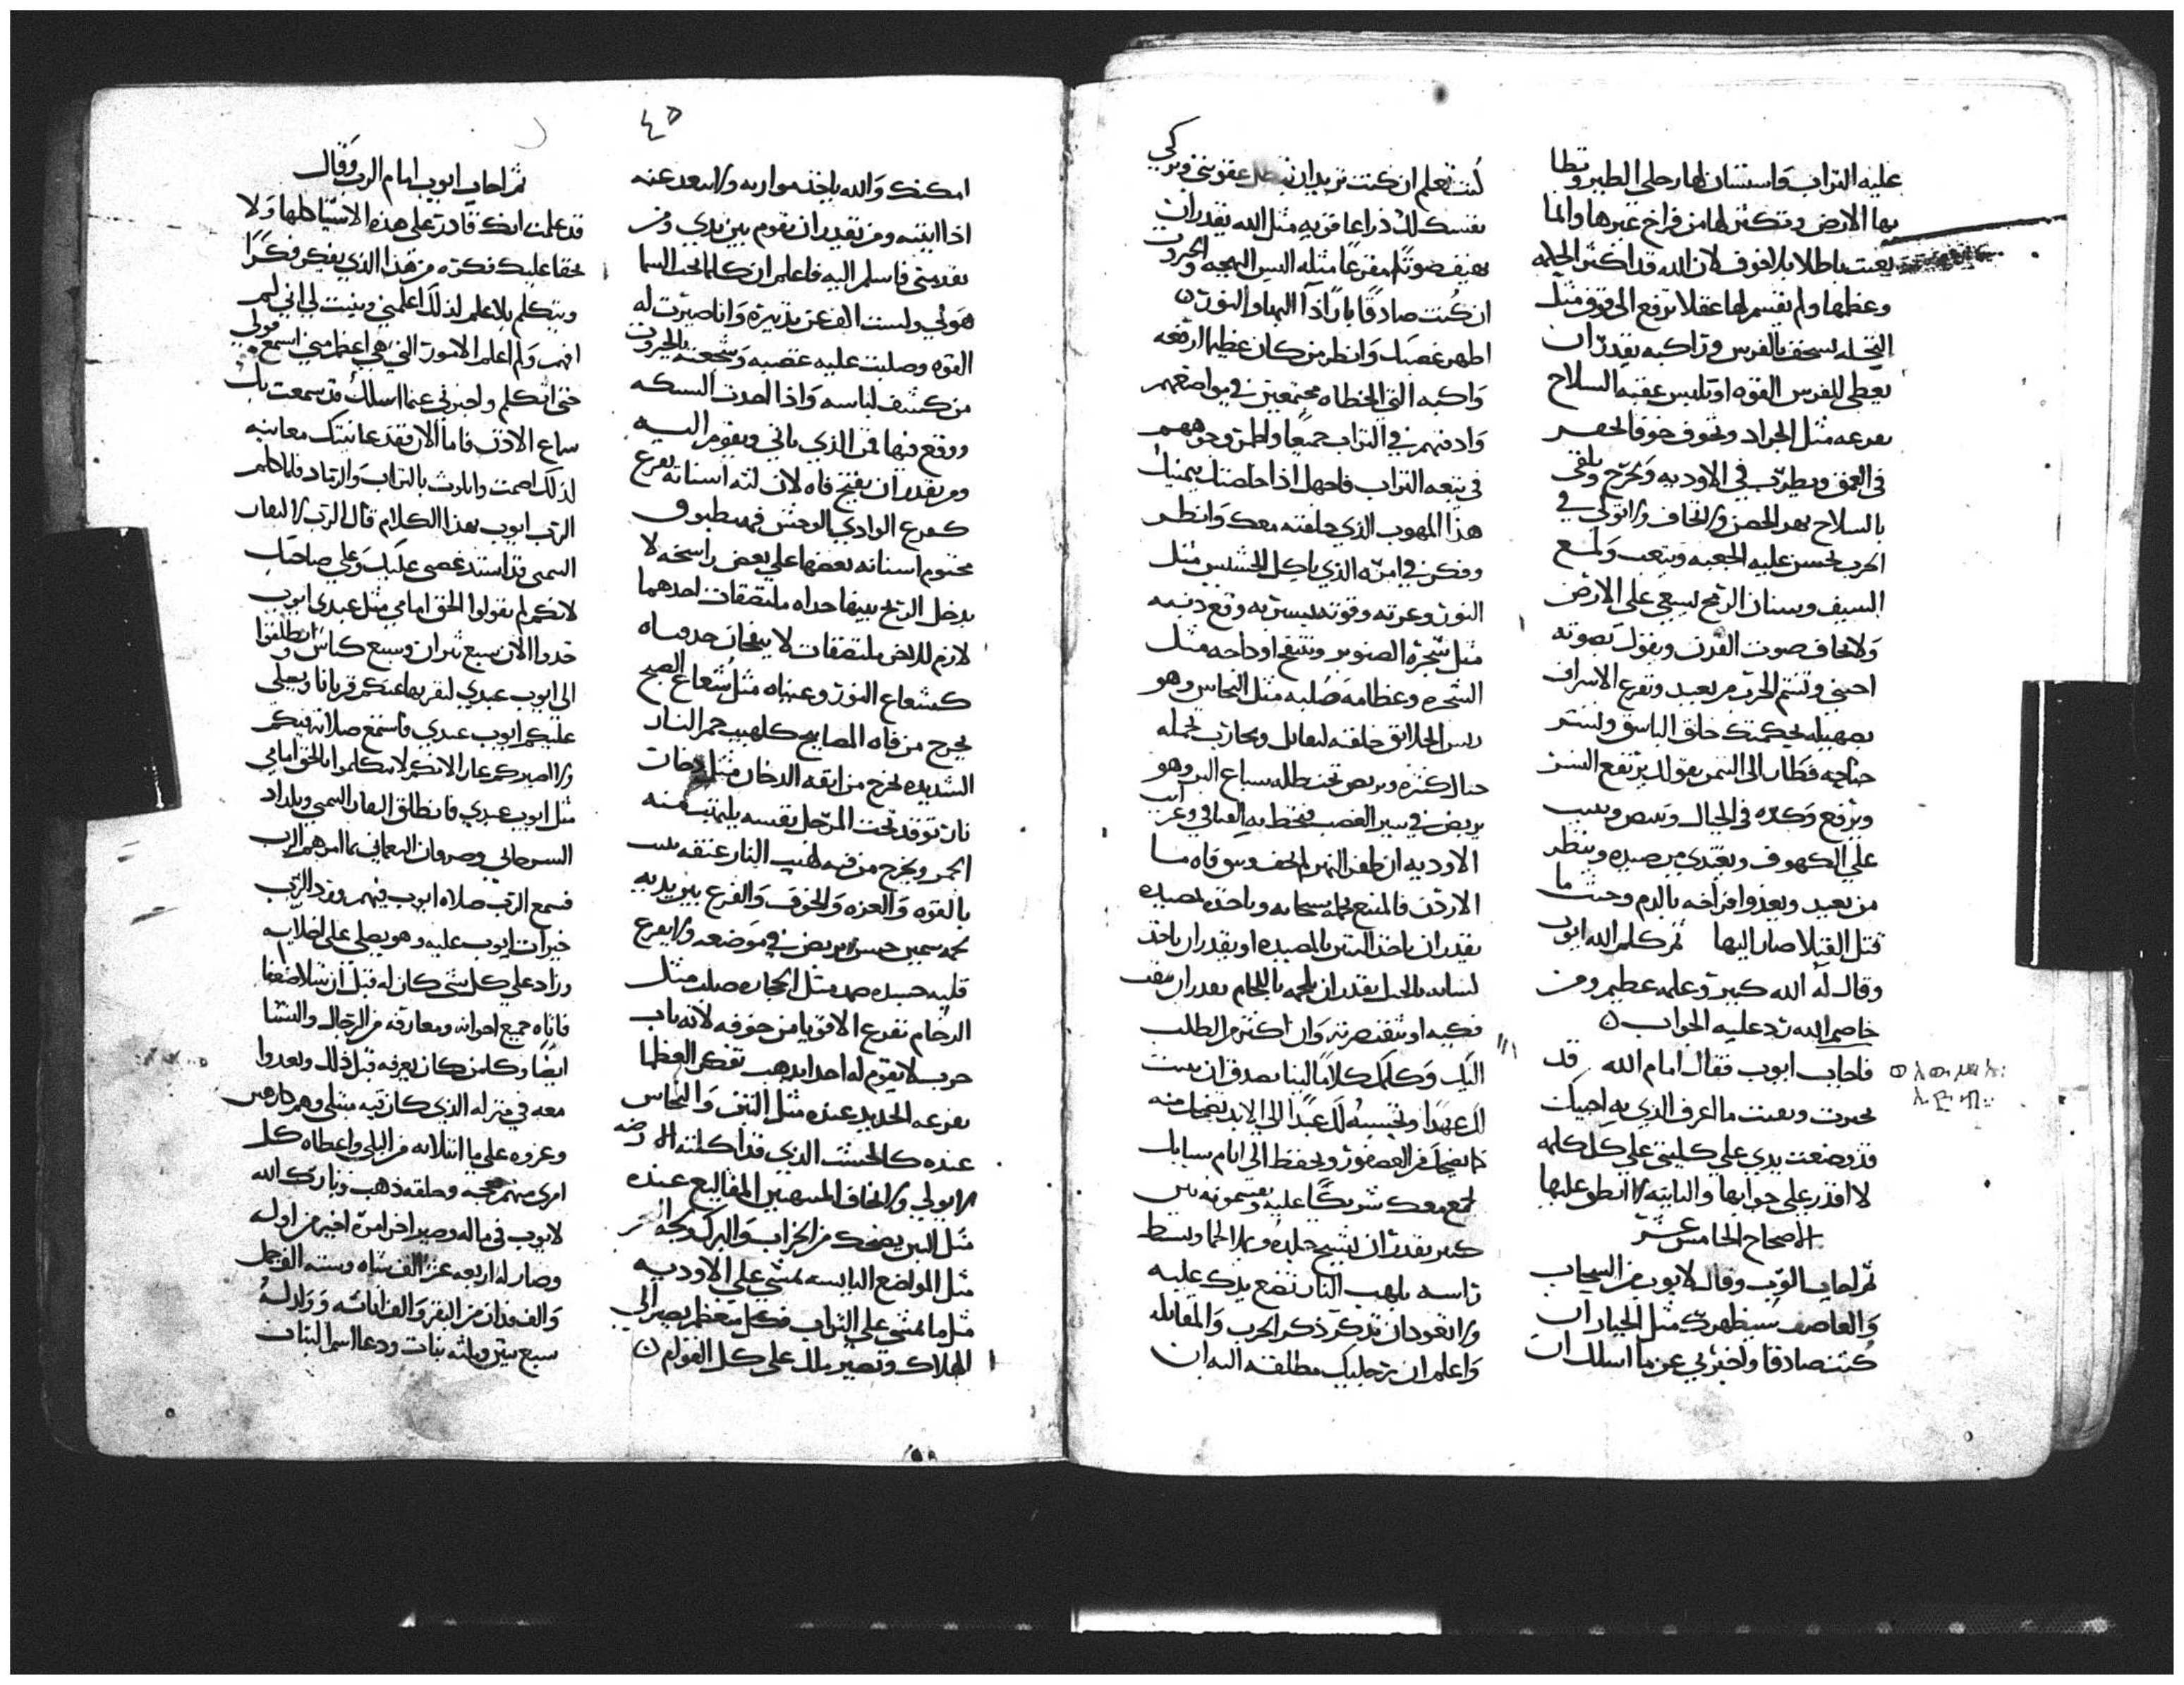 عليه التراب واستشان لها رجلي الطير وتطا
بها الارض وتكثر لها من فراخ غيرها وانما
تعبت باطلا بلا خوف لان الله قد اكثر لها
وعظمها ولم يقسم لها عقلا ترفع الى فوق مثل
النخله تسخف بالفرس وراكبه تقدر ان
يعطي للفرس القوه او تلبس عنقه السلاح
يفرعه مثل الجراد وتخوف خوفا لحفر
في العمق ويطرب في الاوديه ويخرج ويلقى
بالسلاح يهد الحصن ولا يخاف ولا يولي في
الحرب تحسن عليه الجعبه ويتعب ويلمع
السيف وسنان الرمح يسعي على الارض
ولا يخاف صوت القرن ويقول بصوته
احيي وتشتم الحرب من بعيد وتفرع الاشراف
بصهيله بحكمتك خلق الباشق ولينشر
جناحيه فطار الى التيمن بقولك يرتفع النسر
ويرفع وكره في الجبال ويبيض ويبيت
علي الكهوف ويغتدي من صيده وينظر
من بعيد ويغذوا فراخه بالدم وحيث ما
تحتل القتلا صار اليها ثم كلم الله ايوب
وقال له الله كبير وعلمه عظيم ومن
خاصم الله رد عليه الجواب ن
فاجاب ايوب فقال امام الله قد
تحيرت وبقيت ما اعرف الذي به اجيبك
قد وضعت يدي علي كليتي علي كل كلمه
لا اقدر علي جوابها والثانيه لا انطق عليها
الاصحاح الخامس عشر
ثم اجاب الرب وقال لايوب من السحاب
والعاصف شد ظهرك مثل الجبار ان
كنت صادقا واخبرني عن ما اسلك ان
كنت تعلم ان كنت تريد ان تبطل عقوبتي وتزكي
نفسك لك ذراعا قويه مثل الله تقدر ان
تهتف صوتا مفزعا مثله البس البهجه والجبروت
ان كنت صادقا بارا اذا البها والنور ن
اظهر غضبك وانظر من كان عظيما ارفعه
واكبه التي الخطاه مجتمعين في مواضعهم
وادفنهم في التراب جميعا واطمر وجوههم
في بيعه التراب فاجهل اذا خلصتك يمينك
هذا المهوب الذي خلقته معك وانظر
وفكر في امره الذي ياكل الحشيش مثل
الثور وعزته وقوته ليستر به ورفع دنبه
مثل شجرة الصنوبر وتنتفخ اوداجه مثل
الشجره وعظامه صلبه مثل النحاس وهو
ريس الخلائق خلقته ليقاتل ويحارب تحمله
جبال كثيره ويربض تحت ظله سباع البر وهو
يربض في ستر القصب فتحط به الفيافي وعرب
الاوديه ان طفر النهر لم يخف ويبس فاه ما
الاردن فالمنيع يحمله بسحابه وياخذه بمصيده
تقدر ان تاخذ التنين بالمصيده او تقدر ان تاخذ
لسانه بالحبل تقدر ان تلجمه باللجام تقدر ان تثقب
فكيه او تنقض رته وان اكثر من الطلب
اليك وكلمك كلاما لينا تصدق ان يثبت
لك عهدا وتحسبه لك عبدا الي الابد تضحك منه
كما يضحك من العصفور وتحفظ الى ايام سبايك
تجمع معك شريكا عليه وتقسمونه بين
كثير تقدر ان تنسج جلده وتملا لحما وتبسط
راسه بلهب النار تضع يدك عليه
ولا تعود ان تذكر ذكر الحرب والمقاتله
واعلم ان رجليك مطلقه اليه ان
٤٥
امكنك والله ياخذ موازيه ولا يبعد عنه
اذا اتيته ومن تقدر ان تقوم بين يدي ومن
تقدمني فاسلم اليه فاعلم ان كلما تحت السما
هو لي ولست الف عن تدبيره وانا صيرت له
القوه وصليت عليه غضبه وشجعته بالجبروت
من كشف لباسه واذا اخدت الشبكه
ووقع فيها فمن الذي ياتي ويقوم اليه
ومن يقدر ان يفتح فاه لان لثه اسنانه تفرع
كفرع الوادي بالوحش فمه مطبوق
مختوم اسنانه بعضها علي بعض راسخه لا
يدخل الريح بينها حداه ملتصقات احدهما
لازم للارض ملتصقات لا ينفكان حدقتاه
كشعاع النور وعيناه مثل شعاع الصبح
يخرج من فاه المصابيح كلهيب جمر النار
الشديده تخرج من انفه الدخان مثل دخان
نار توقد تحت المرجل نفسه يلتهب منه
الجمر ويخرج من فيه لهيب النار عنقه تبيت
بالقوه والعزه والخوف والفزع بين يديه
لحمه سمين حسن يربض في موضعه ولا يفرع
قلبه حسيده صمد مثل الحجاره صلب مثل
الرخام تفزع الاقويا من خوفه لانه باب
حرب لا يقوم له احدا يذهب بفكر العظما
يفرعه الحديد عنده مثل التبن والنحاس
عنده كالخشب الذي قد اكلته الارضه
لا يولي ولا يخاف المسهين المقاليع عنده
مثل التبن يضحك من الخراب والبرك ولجه البحر
مثل المواضع اليابسه يمشي علي الاوديه
مثل ما يمشي علي التراب فكل متعظم يصير الي
الهلاك وتصير ملك علي كل الهوام ن
ثم اجاب ايوب امام الرب وقال
قد علمت انك قادر علي هذه الاشيا كلها ولا
يخفا عليك فكره من هذا الذي يفكر فكرا
ويتكلم بلا علم لذلك اعلمني وبينت لي اني لم
افهم ولم اعلم الامور التي هي اعظم مني اسمع قولي
حتى اتكلم واخبرني عما اسلك قد سمعت بك
سماع الاذن فاما الان فقد عاينتك معاينه
لذلك اصمت واتلوث بالتراب والرماد فلما كلم
الرب ايوب بهذا الكلام قال الرب لاليفاز
التيمني قد اشتد غضبي عليك وعلي صاحبيك
لانكم لم تقولوا الحق امامي مثل عبدي ايوب
خدوا الان سبع ثيران وسبع كباش وانطلقوا
الى ايوب عبدي ليقربها عنكم قربانا ويصلي
عليكم ايوب عبدي فاسمع صلاته فيكم
ولا اصيركم عارا لانكم لم تتكلموا بالحق امامي
مثل ايوب عبدي فانطلق اليفاز التيمني وبلداد
السرحاني وصوفان النعماني بما امرهم الرب
فسمع الرب صلاة ايوب فيهم ورد الرب
خيرات ايوب عليه وهو يصلي علي اخلايه
وزاد علي كل شي كان له قبل ان يبتلا ضعفا
فاتاه جميع اخوانه ومعارفه من الرجال والنسا
ايضا وكلمن كان يعرفه قبل ذلك وتغدوا
معه في منزله الذي كان فيه مبتلي وهم
وعزوه علي ما ابتلاه من البلي واعطاه كل
امرى منهم نعجه وحلقه ذهب وبارك الله
لايوب في ماله وصير اخر امره اخير من اوله
وصار له اربعه عشر الف شاه وسته الف جمل
والف فدان من البقر والف اتانه وولد له
سبع بنين وثلثه بنات ودعا اسما البنات